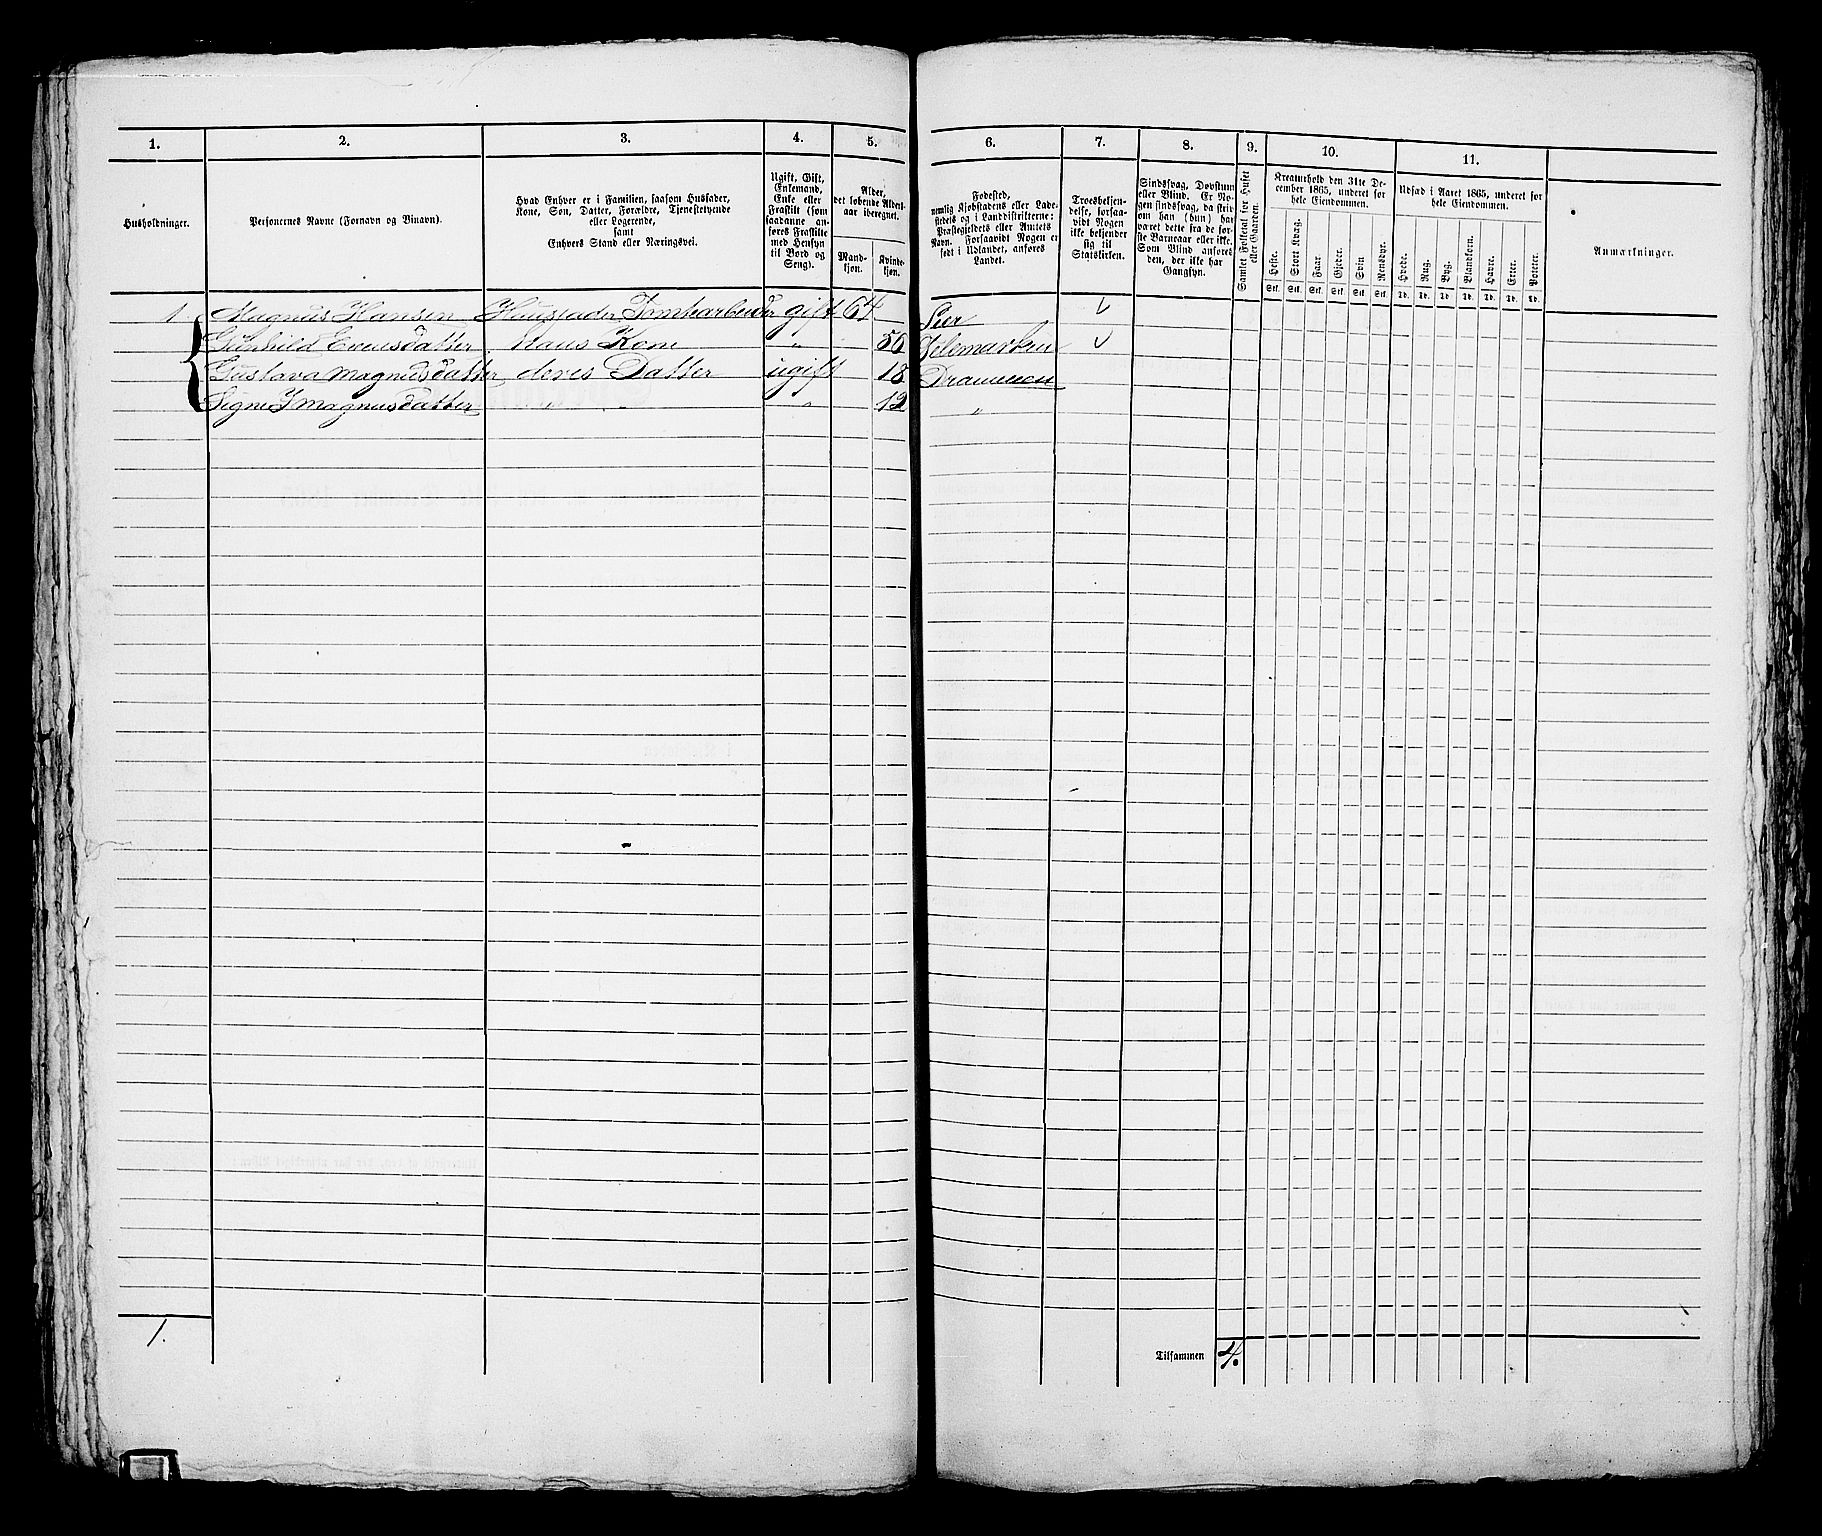 1. 2. 3. 4. 5. 6. 7. 8. 9. 10. 11.
Husholdninger.
Personernes Navne (Fornavn og Binavn).
Hvad Enhver er i Familien, saasom Husfader,
Kone, Søn, Datter, Forældre, Tjenestetyende
eller Logerende,
samt
Enhvers Stand eller Næringsvei.
Ugift, Gift,
Enkemand,
Enke eller
Fraskilt (som
saadanne an-
føres Fraskilte
med Hensyn
til Bord og
Seng).
Alder,
det løbende Alders-
aar iberegnet.
Mand-
kjøn.
Kvinde-
kjøn.
Fødested,
nemlig Kjøbstadens eller Lade-
stedets og i Landdistrikterne:
Præstegjeldets eller Amtets
Navn. Forsaavidt Nogen er
født i Udlandet, anføres
Landet.
Troesbekjen-
delse, forsaa-
vidt Nogen
ikke bekjender
sig til
Statskirken.
Sindssvag, Døvstum
eller Blind. Er No-
gen sindssvag, da skriv
om han (hun) har
været dette fra de før-
ste Barneaar eller ikke.
Som Blind anføres
den, der ikke har
Gangsyn.
Samlet Folketal for Huset
eller Gaarden.
Kreaturhold den 31te De-
cember 1865, underet for
hele Eiendommen.
Heste. Stort Kvæg. Faar. Gjeder. Svin. Rensdyr.
Stk. Stk. Stk. Stk. Stk. Stk.
Udsæd i Aaret 1865, underet for
hele Eiendommen.
Hvede. Rug. Byg. Blandkorn. Havre. Erter. Poteter.
Td. Td. Td. Td. Td. Td. Td.
Anmærkninger.
1 Magnus Hansen Huusfader Tomtearbeider gift 64 Lier
Gunhild Evensdatter Hans Kone " 50 Telemarken
Gustava Magnusdatter deres Datter ugift 18 Drammen
Signe Magnusdatter " " " 12 "
1.
Tilsammen 4.